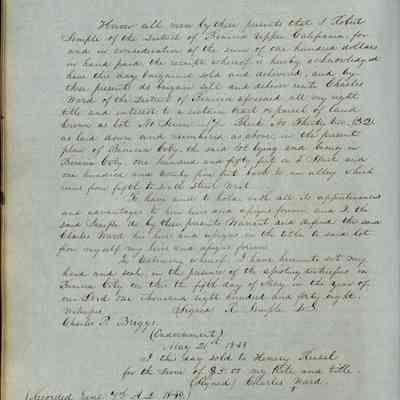 Know all men by these presents that I Robert
Semple of the District of Benicia Upper California, for
and in consideration of the sum of one hundred dollars
in hand paid, the receipt whereof is hereby acknowledged
have this day bargained sold and delivered, and by
these presents do bargain sell and deliver unto Charles
Ward of the District of Benicia aforesaid all my right
title and interest to a certain tract or parcel of land
known as lot No. Block No. Thirty two, (32)
as laid down and numbered as above in the present
plan of Benicia City, the said lot lying and being in
Benicia City, one hundred and fifty feet on Street and
one hundred and twenty five feet back to an alley which
runs from fifth to sixth Street West.
To have and to hold with all its appurtenances
and advantages to him his heirs and assigns forever and I the
said Semple do by these presents Warrant and defend the said
Charles Ward his heirs and assigns in the title to said lot
from myself my heirs and assigns forever.
In testimony whereof, I have hereunto set my
hand and seal, in the presence of the in
Benicia City on this the fifth day of May in the year of
our Lord one thousand eight hundred and forty eight.
Witnesses Signed R. Semple L.S.
Charles P. Briggs.
(Endorsement)
May 21st 1848
I this day sold to Henry
for the sum of my title and title.
(Signed) Charles Ward.
Recorded June A.D. 1848.